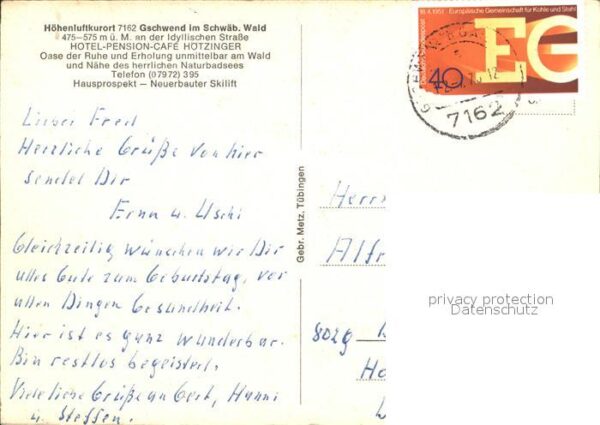 Höhenluftkurort 7162 Gschwend im Schwäb. Wald
475–575 m ü. M. an der Idyllischen Straße
HOTEL-PENSION-CAFÉ HÖTZINGER
Oase der Ruhe und Erholung unmittelbar am Wald
und Nähe des herrlichen Naturbadsees
Telefon (07972) 395
Hausprospekt — Neuerbauter Skilift
Lieber Fred
Herzliche Grüße von hier
sendet Dir
Erna u. Uschi
Gleichzeitig wünschen wir Dir
alles Gute zum Geburtstag, vor
allen Dingen Gesundheit.
Hier ist es ganz wunderbar.
Bin restlos begeistert.
Viele liebe Grüße an Gert, Hanni
u. Steffen.
Gebr. Metz, Tübingen
18.4.1951 Europäische Gemeinschaft für Kohle und Stahl
40
EG
7162
Herrn
Alfr
8029
privacy protection
Datenschutz